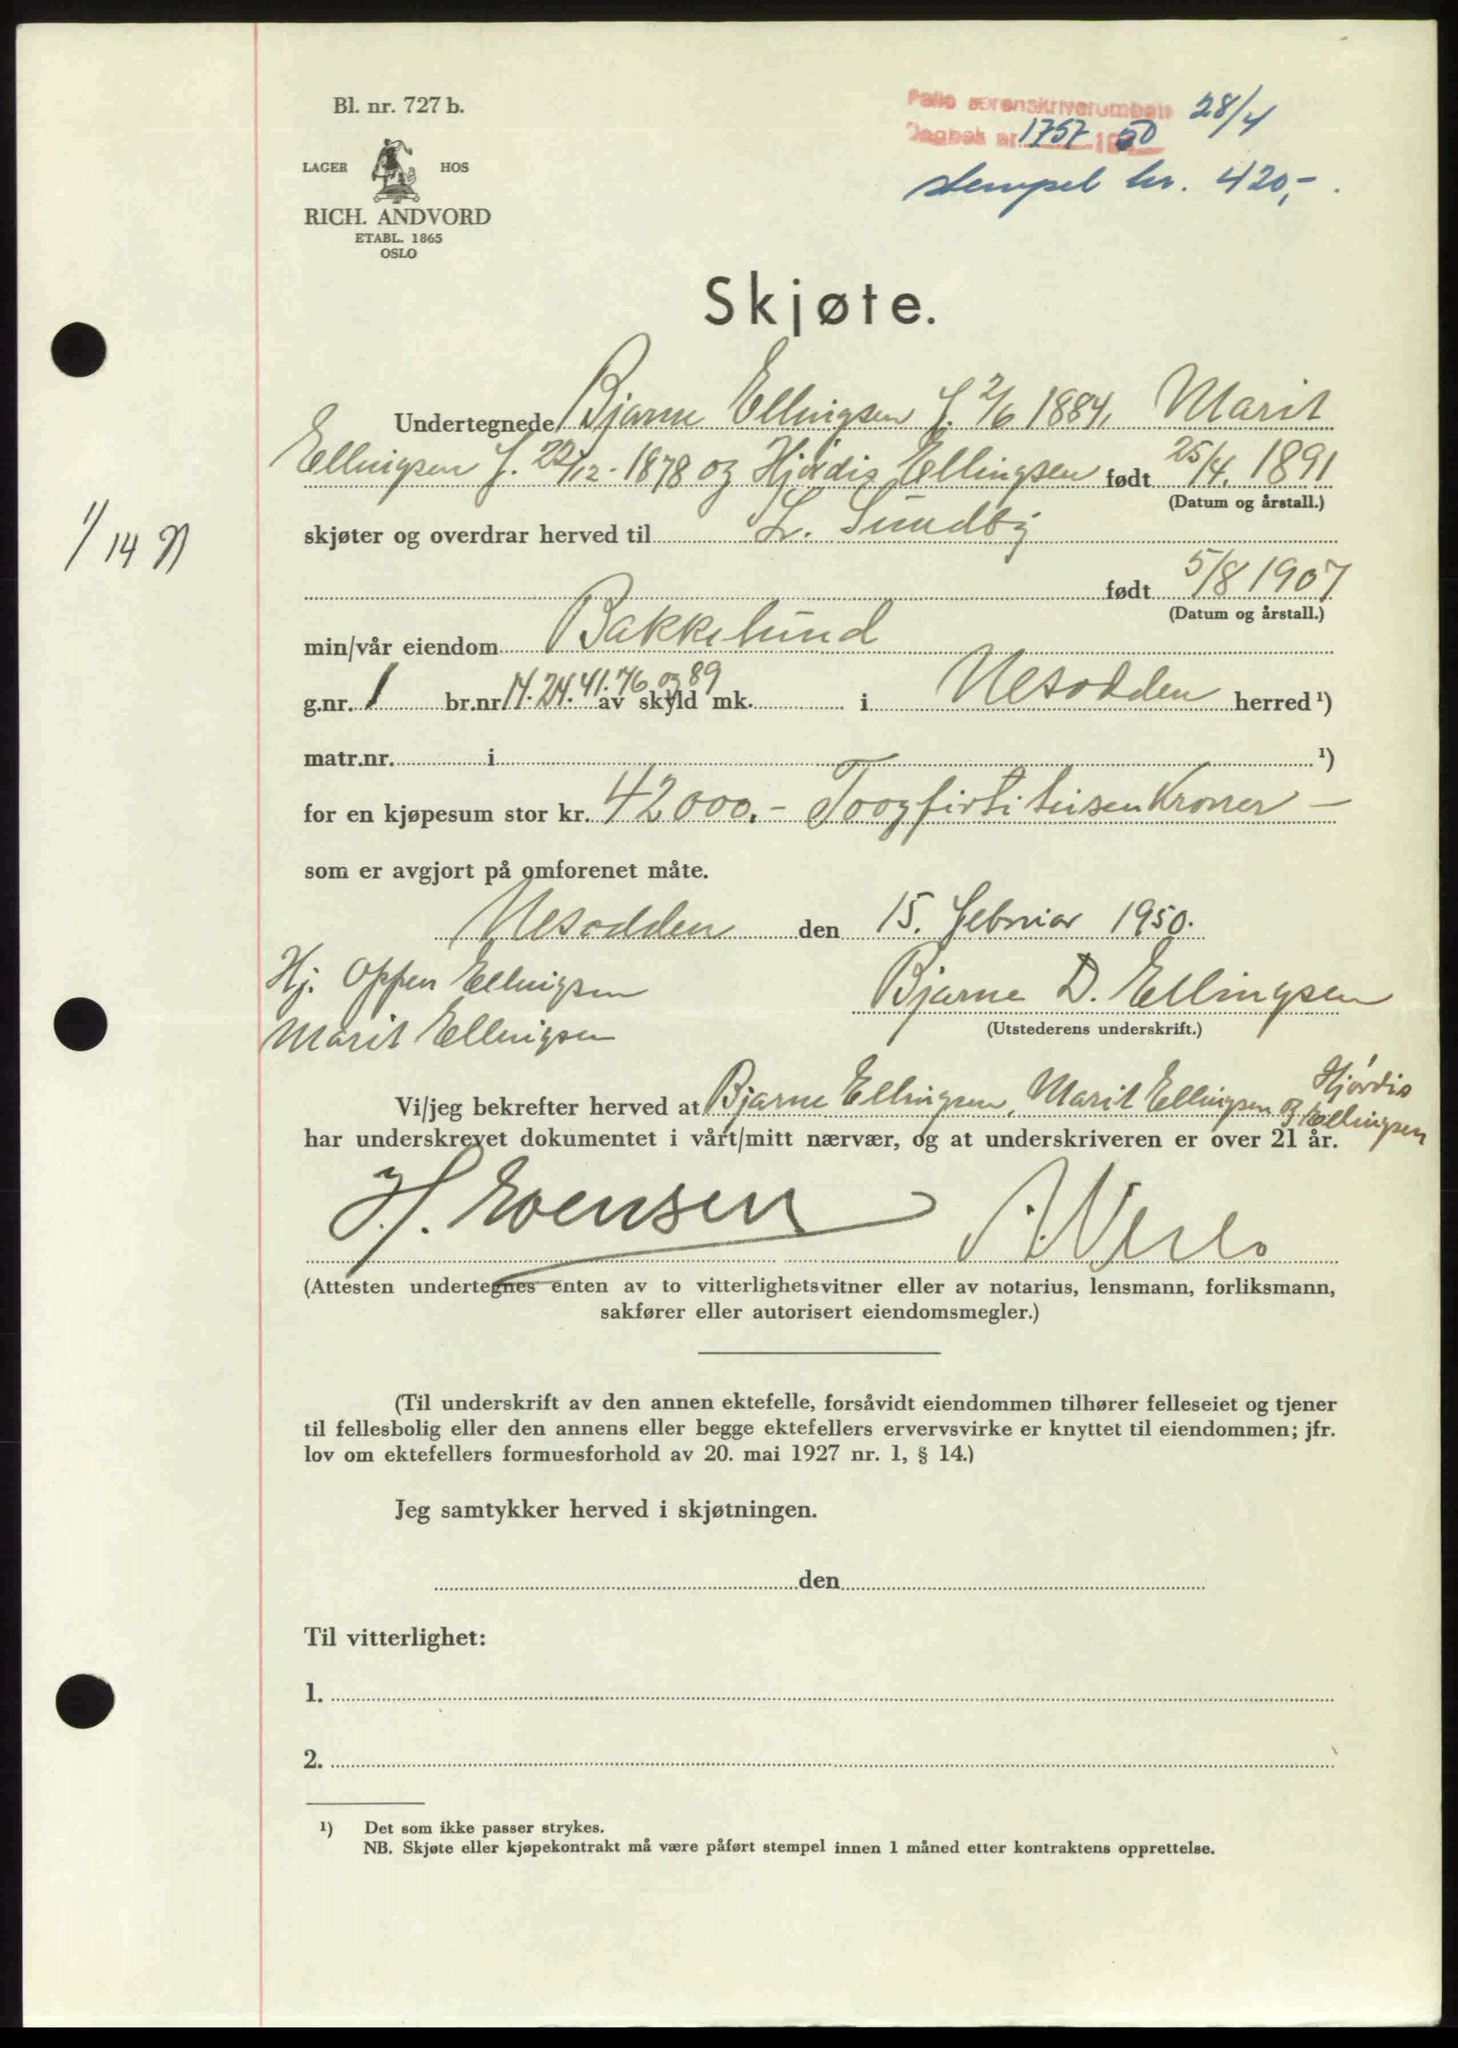 Bl. nr. 727 b.
LAGER HOS
RICH. ANDVORD
ETABL. 1865
OSLO
Follo sorenskriverembete 28/4
Dagbok nr. 1757 1950
stempel kr. 420,-.
Skjøte.
Undertegnede Bjarne Ellingsen f. 2/6 1884, Marit
Ellingsen f. 22/12 - 1878 og Hjørdis Ellingsen født 25/4. 1891
(Datum og årstall.)
skjøter og overdrar herved til L. Sundby
1/14
født 5/8 1907
(Datum og årstall.)
min/vår eiendom Bakkelund
g.nr. 1 br.nr 14. 24. 41. 76 og 89 av skyld mk. i Nesodden herred ¹)
matr.nr. i ¹)
for en kjøpesum stor kr. 42000.- Toogfirtitusen Kroner -
som er avgjort på omforenet måte.
Nesodden den 15. februar 1950.
Hj. Oppen Ellingsen
Bjarne D. Ellingsen
Marit Ellingsen
(Utstederens underskrift.)
Vi/jeg bekrefter herved at Bjarne Ellingsen, Marit Ellingsen og Hjørdis Ellingsen
har underskrevet dokumentet i vårt/mitt nærvær, og at underskriveren er over 21 år.
H. Evensen
(Attesten undertegnes enten av to vitterlighetsvitner eller av notarius, lensmann, forliksmann,
sakfører eller autorisert eiendomsmegler.)
(Til underskrift av den annen ektefelle, forsåvidt eiendommen tilhører felleseiet og tjener
til fellesbolig eller den annens eller begge ektefellers ervervsvirke er knyttet til eiendommen; jfr.
lov om ektefellers formuesforhold av 20. mai 1927 nr. 1, § 14.)
Jeg samtykker herved i skjøtningen.
den
Til vitterlighet:
1.
2.
¹) Det som ikke passer strykes.
NB. Skjøte eller kjøpekontrakt må være påført stempel innen 1 måned etter kontraktens opprettelse.